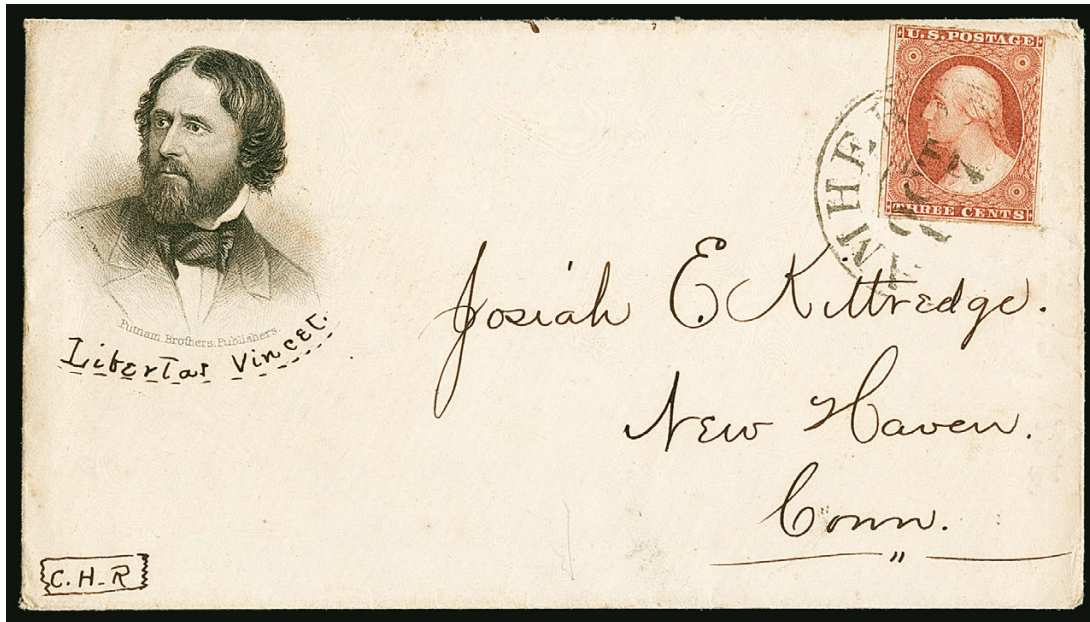 U.S. POSTAGE
THREE CENTS
Putnam Brothers, Publishers.
Libertas Vincet.
Josiah E. Kittredge.
New Haven.
Conn.
C.H-R